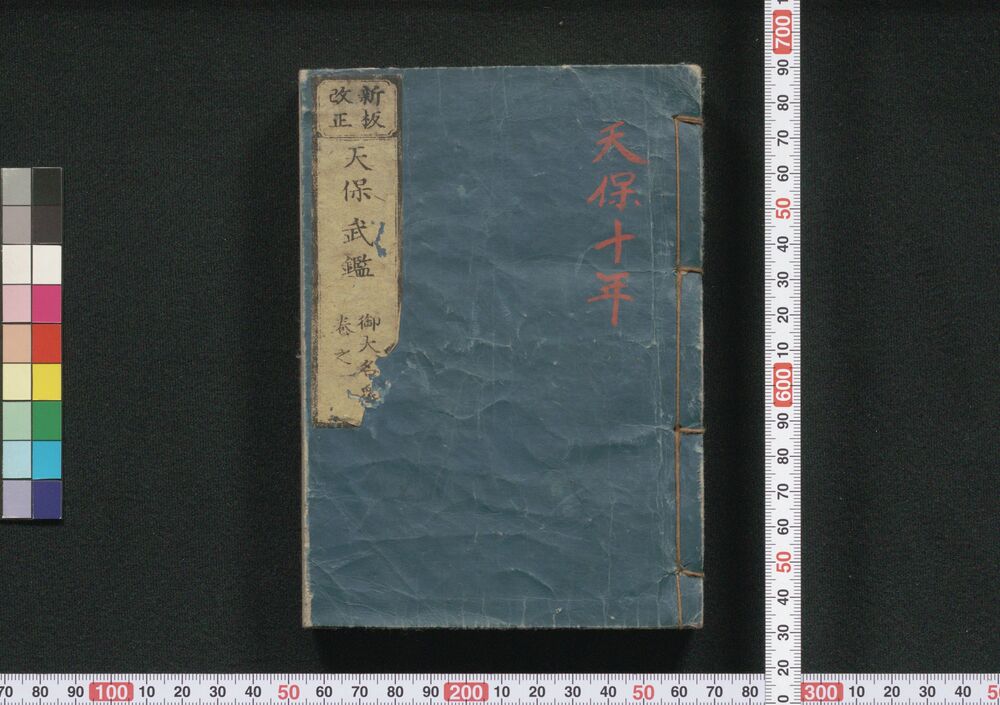 天保十年
新板
改正
天保武鑑
御大名
巻之
700
90
80
70
60
50
40
30
20
10
600
90
80
70
60
50
40
30
20
0
70 80 90 100 10 20 30 40 50 60 70 80 90 200 10 20 30 40 50 60 70 80 300 10 20 30 40